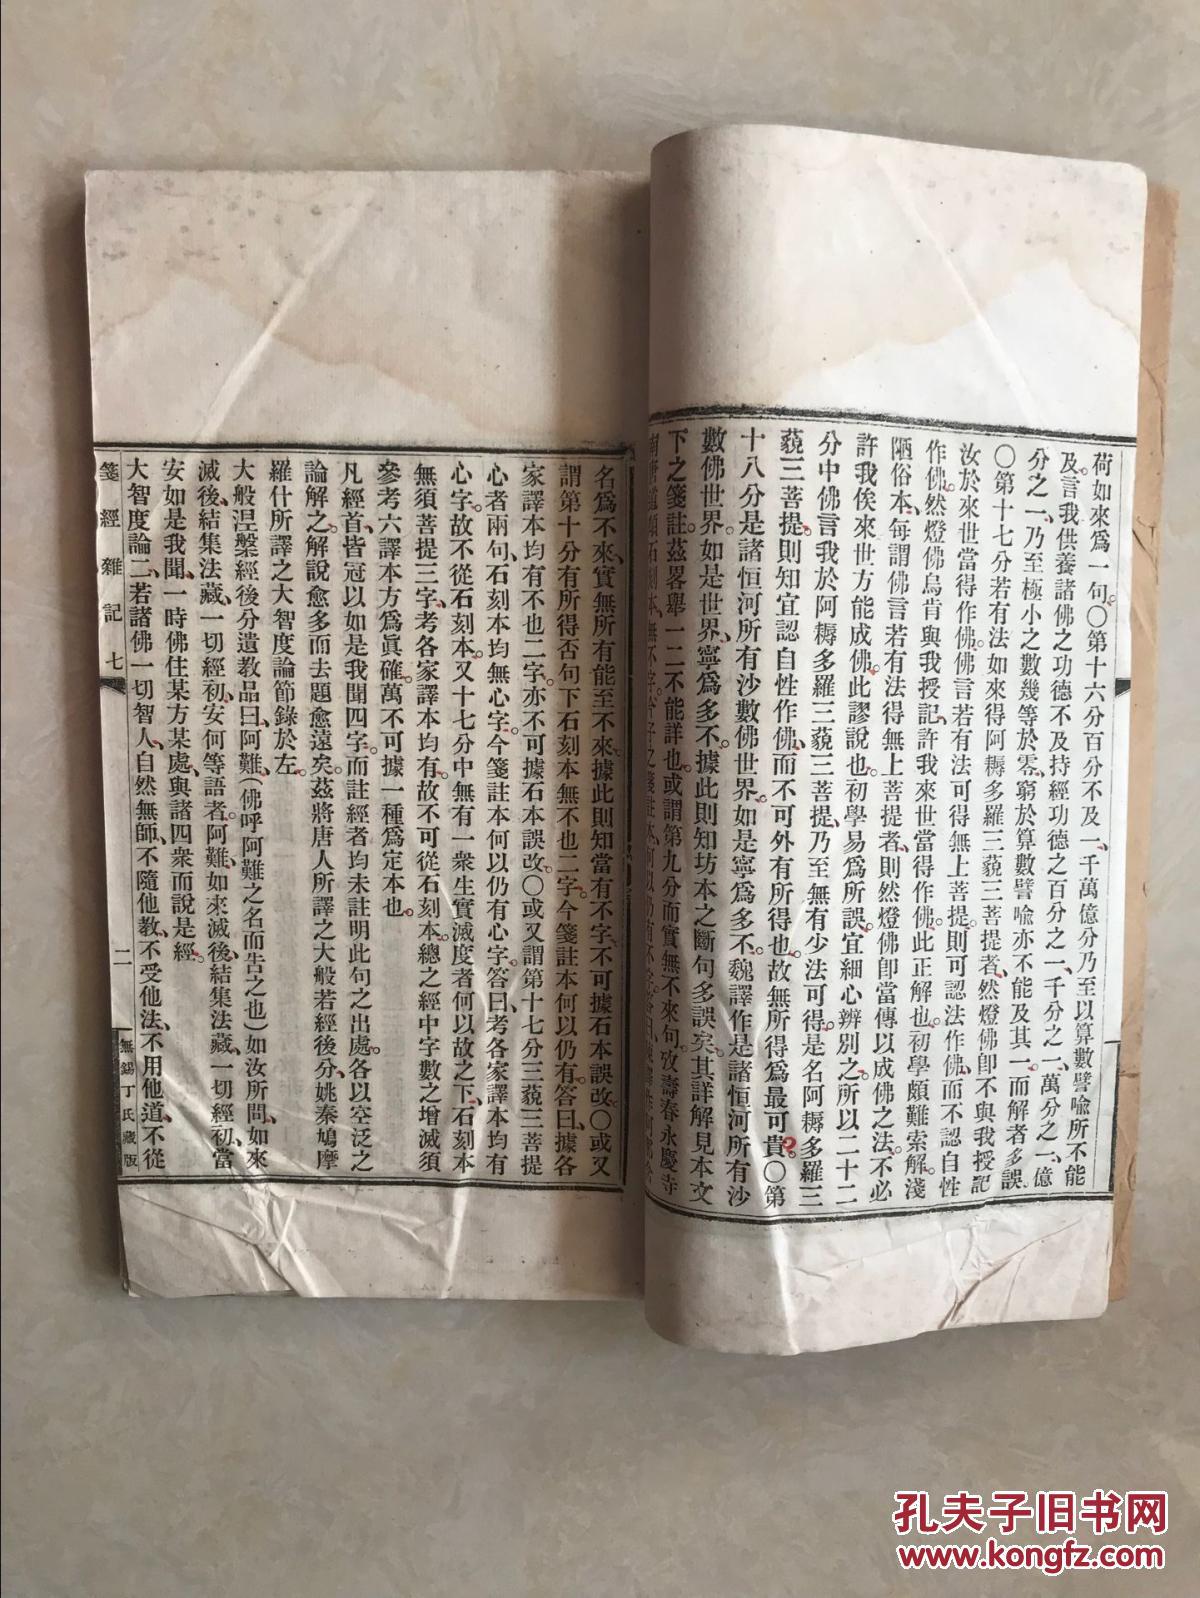 荷如來爲一句。〇第十六分百分不及一、千萬億分乃至以算數譬喻所不能
及。言我供養諸佛之功德不及持經功德之百分之一、千分之一、萬分之一、億
分之一、乃至極小之數幾等於零。窮於算數譬喻亦不能及其一。而解者多誤
〇第十七分若有法如來得阿耨多羅三藐三菩提者、然燈佛卽不與我授記
汝於來世當得作佛。佛言若有法可得無上菩提、則可認法作佛、而不認自性
作佛。然燈佛烏肯與我授記、許我來世當得作佛。此正解也。初學頗難索解。淺
陋俗本、每謂佛言若有法得無上菩提者、則然燈佛卽當傳以成佛之法、不必
許我俟來世方能成佛。此謬說也。初學易爲所誤。宜細心辨別之。所以二十二
分中佛言我於阿耨多羅三藐三菩提、乃至無有少法可得。是名阿耨多羅三
藐三菩提、則知宜認自性作佛、而不可外有所得也。故無所得爲最可貴。〇第
十八分是諸恒河所有沙數佛世界。如是寧爲多不。魏譯作是諸恒河所有沙
數佛世界。如是世界、寧爲多不。據此則知坊本之斷句多誤矣。其詳解見本文
下之箋註。茲畧舉一二不能詳也。或謂第九分而實無不來句。攷壽春永慶寺
名爲不來、實無所有能至不來。據此則知當有不字。不可據石本誤改。〇或又
謂第十分有所得否句下石刻本無不也二字。今箋註本何以仍有。答曰、據各
家譯本均有不也二字。亦不可據石本誤改。〇或又謂第十七分三藐三菩提
心者兩句、石刻本均無心字。今箋註本何以仍有心字。答曰、考各家譯本均有
心字。故不從石刻本。又十七分中無有一衆生實滅度者何以故之下、石刻本
無須菩提三字、考各家譯本均有。故不可從石刻本。總之經中字數之增減須
參考六譯本方爲眞確。萬不可據一種爲定本也。
凡經首、皆冠以如是我聞四字。而註經者均未註明此句之出處。各以空泛之
論解之。解說愈多而去題愈遠矣。茲將唐人所譯之大般若經後分、姚秦鳩摩
羅什所譯之大智度論節錄於左。
大般涅槃經後分遺教品曰、阿難、(佛呼阿難之名而告之也)如汝所問、如來
滅後、結集法藏、一切經初、安何等語者。阿難、如來滅後、結集法藏、一切經初、當
安如是我聞、一時佛住某方某處、與諸四衆而說是經。
大智度論二、若諸佛一切智人、自然無師、不隨他教、不受他法、不用他道、不從
箋經雜記 七 二 無錫丁氏藏版
孔夫子旧书网
www.kongfz.com